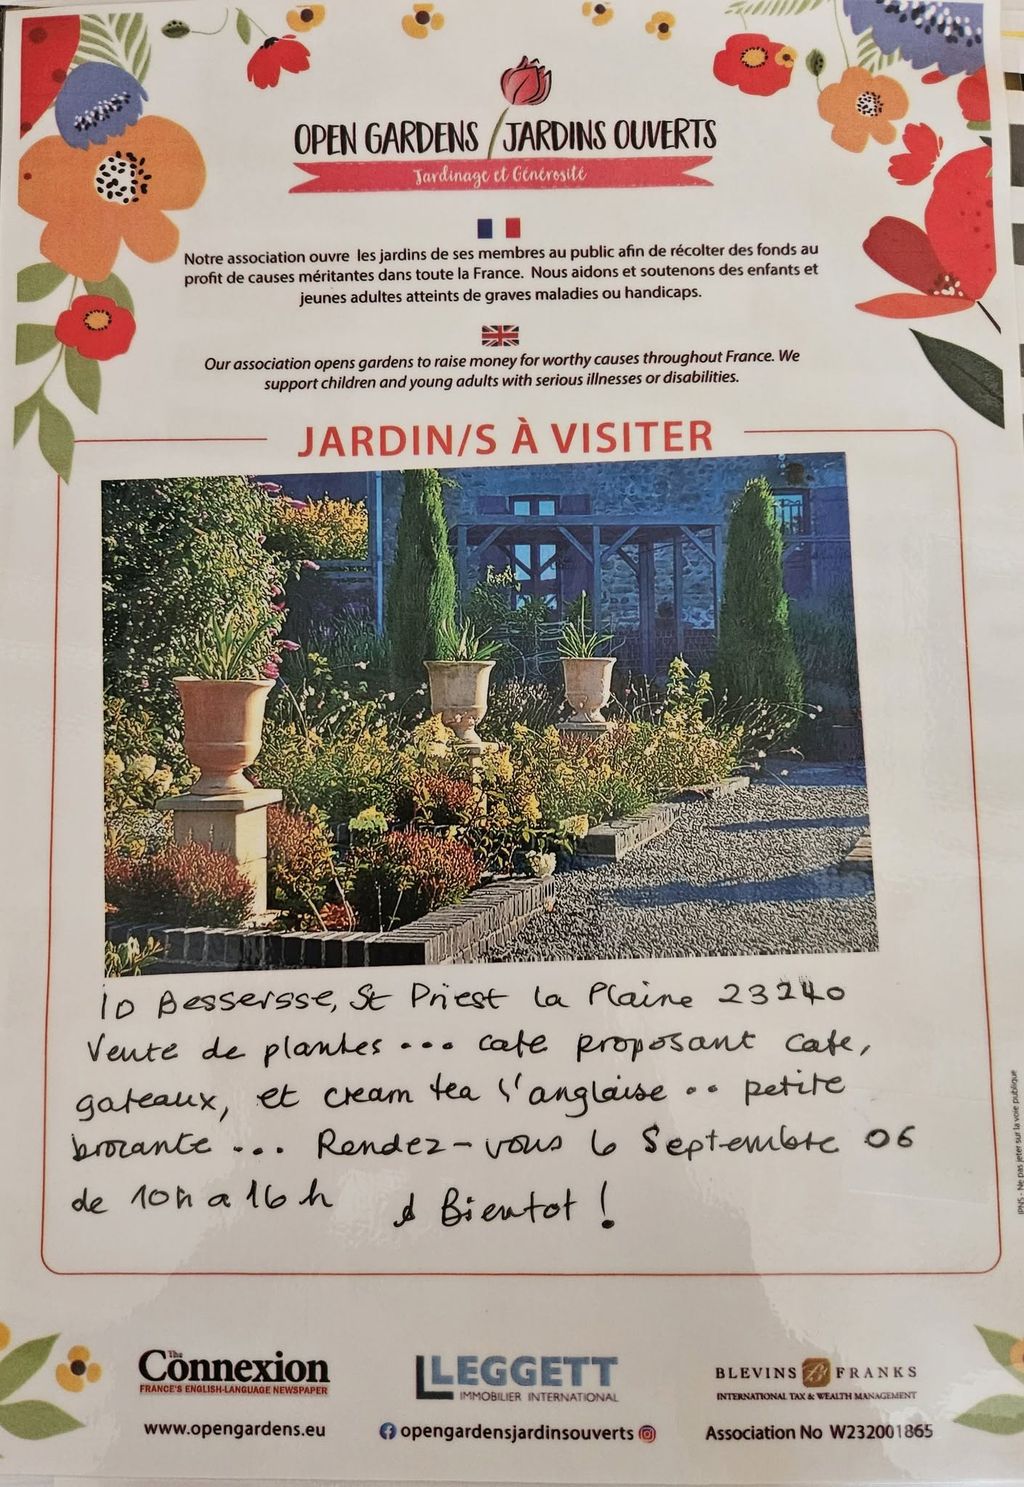 OPEN GARDENS / JARDINS OUVERTS
Jardinage et Générosité
Notre association ouvre les jardins de ses membres au public afin de récolter des fonds au
profit de causes méritantes dans toute la France. Nous aidons et soutenons des enfants et
jeunes adultes atteints de graves maladies ou handicaps.
Our association opens gardens to raise money for worthy causes throughout France. We
support children and young adults with serious illnesses or disabilities.
JARDIN/S À VISITER
10 Bessersse, St Priest la Plaine 23240
Vente de plantes ... cafe proposant cafe,
gateaux, et cream tea l'anglaise .. petite
brocante ... Rendez-vous le Septembre 06
de 10h a 16h à Bientot !
IPNS - Ne pas jeter sur la voie publique
The Connexion
FRANCE'S ENGLISH-LANGUAGE NEWSPAPER
LEGGETT
IMMOBILIER INTERNATIONAL
BLEVINS FRANKS
INTERNATIONAL TAX & WEALTH MANAGEMENT
www.opengardens.eu
opengardensjardinsouverts
Association No W232001865